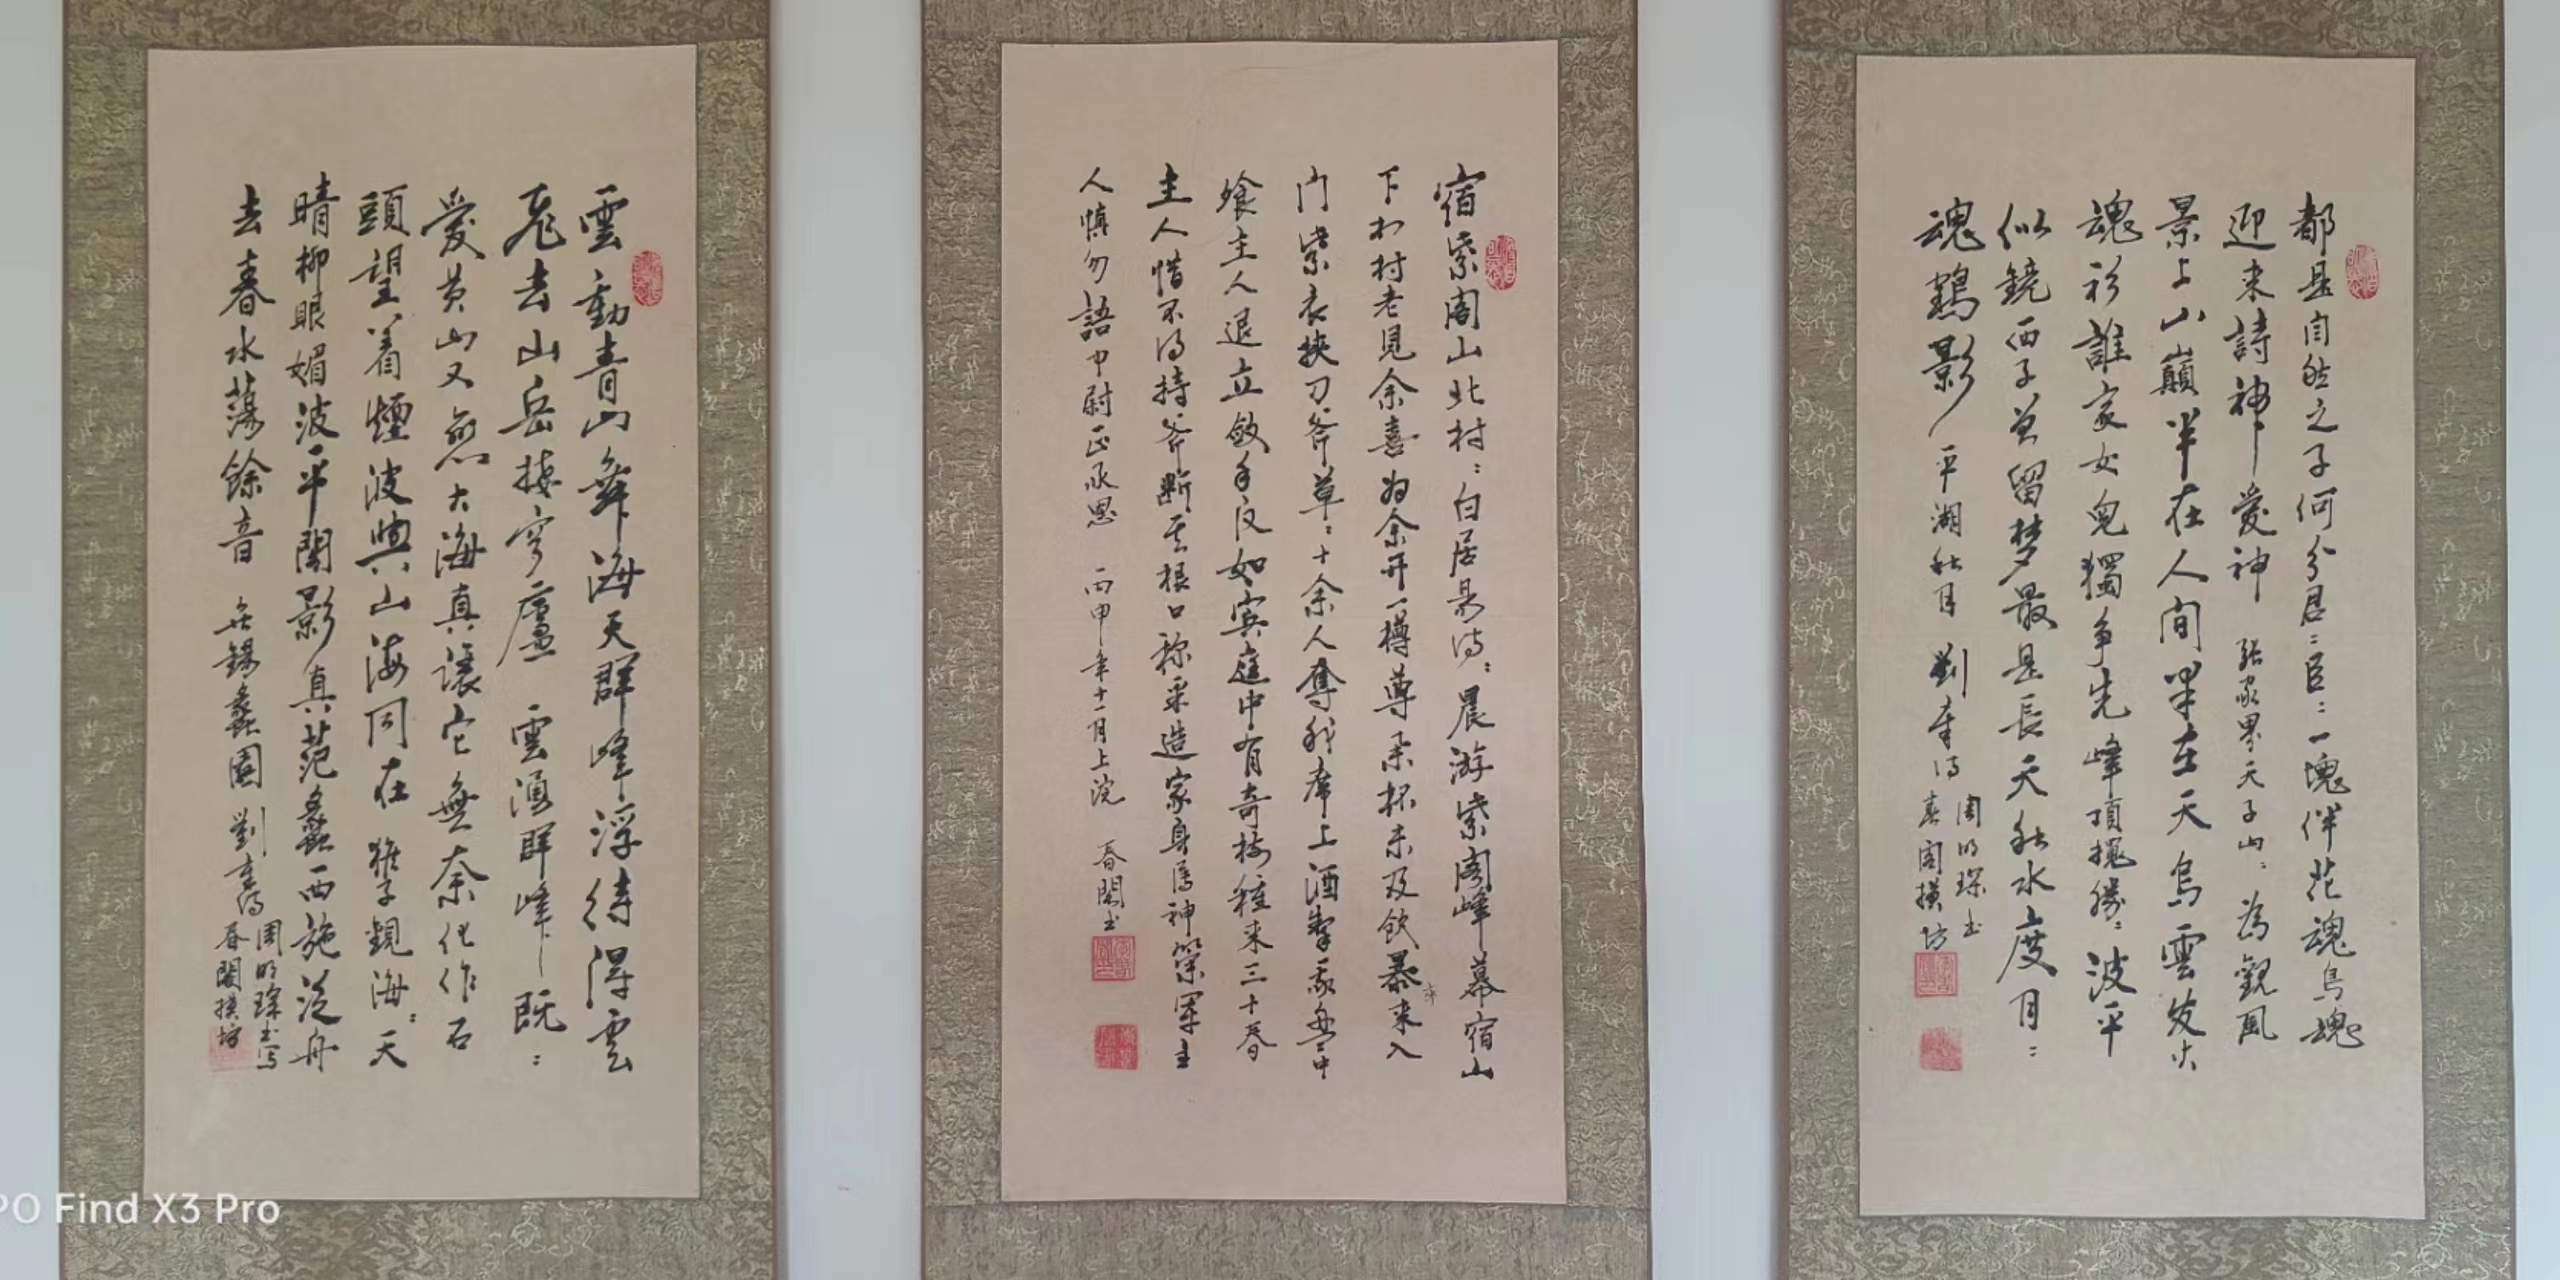 都是自然之子何分君:臣:一塊伴花魂鳥魂
迎来詩神愛神 張家界天子山:為觀風
景上山巔半在人间半在天烏雲发火
魂衫誰家女兒獨争先峰頂攬勝:波平
似鏡西子曾留梦最是長天秋水度月:
魂鶴影 平湖秋月 劉章诗
周明琛书
春閣摸坊
宿紫阁山北村:白居易诗:晨游紫阁峰暮宿山
下村村老見余喜为余开一樽尊未杯未及飲暴来入
卒
门紫衣挟刀斧草:十余人奪我席上酒掣我盘中
飧主人退立斂手反如宾庭中有奇树種来三十春
主人惜不得持斧断其根口称采造家身属神策军主
人慎勿語中尉正承恩 丙申年十一月上浣 春閣书
雲動青山舞海天群峰浮待得雲
飛去山岳接穹廬 雲湧群峰 既:
愛黄山又戀大海真讓它無奈化作石
頭望着煙波與山海同在 猴子觀海:天
晴柳眼媚波平閣影真范蠡西施泛舟
去春水蕩餘音 无锡蠡園 劉章诗
周明琛书写
春閣摸坊
PO Find X3 Pro